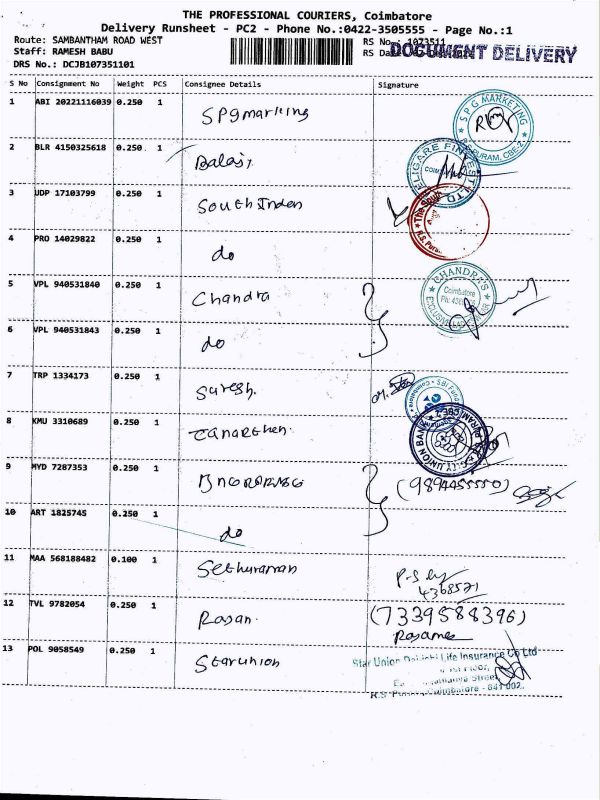 THE PROFESSIONAL COURIERS, Coimbatore
Delivery Runsheet - PC2 - Phone No.:0422-3505555 - Page No.:1
Route: SAMBANTHAM ROAD WEST RS No.: 1073511
Staff: RAMESH BABU RS Da DOCUMENT DELIVERY
DRS No.: DCJB107351101
S No Consignment No Weight PCS Consignee Details Signature
1 ABI 20221116039 0.250 1 SPgmarking
S P G MARKETING
R.S.PURAM, CBE-2.
2 BLR 4150325618 0.250 1 Balaji
RELIGARE FINVEST LTD
3 UDP 17103799 0.250 1 South Inden
The South
R.S. Puram
4 PRO 14029822 0.250 1 do
5 VPL 940531840 0.250 1 Chandra
CHANDRA'S
Coimbatore
6 VPL 940531843 0.250 1 do
7 TRP 1334173 0.250 1 Suresh.
SBI Fund
8 KMU 3310689 0.250 1
CITY UNION BANK
9 MYD 7287353 0.250 1 (9894455550)
10 ART 1825745 0.250 1 do
11 MAA 568188482 0.100 1 Sethuraman
4368571
12 TVL 9782054 0.250 1 Rasan. (7339588396)
13 POL 9058549 0.250 1 Starunion
Star Union Dai-ichi Life Insurance Co Ltd
Floor,
Street,
R.S. Puram, Coimbatore - 641 002.